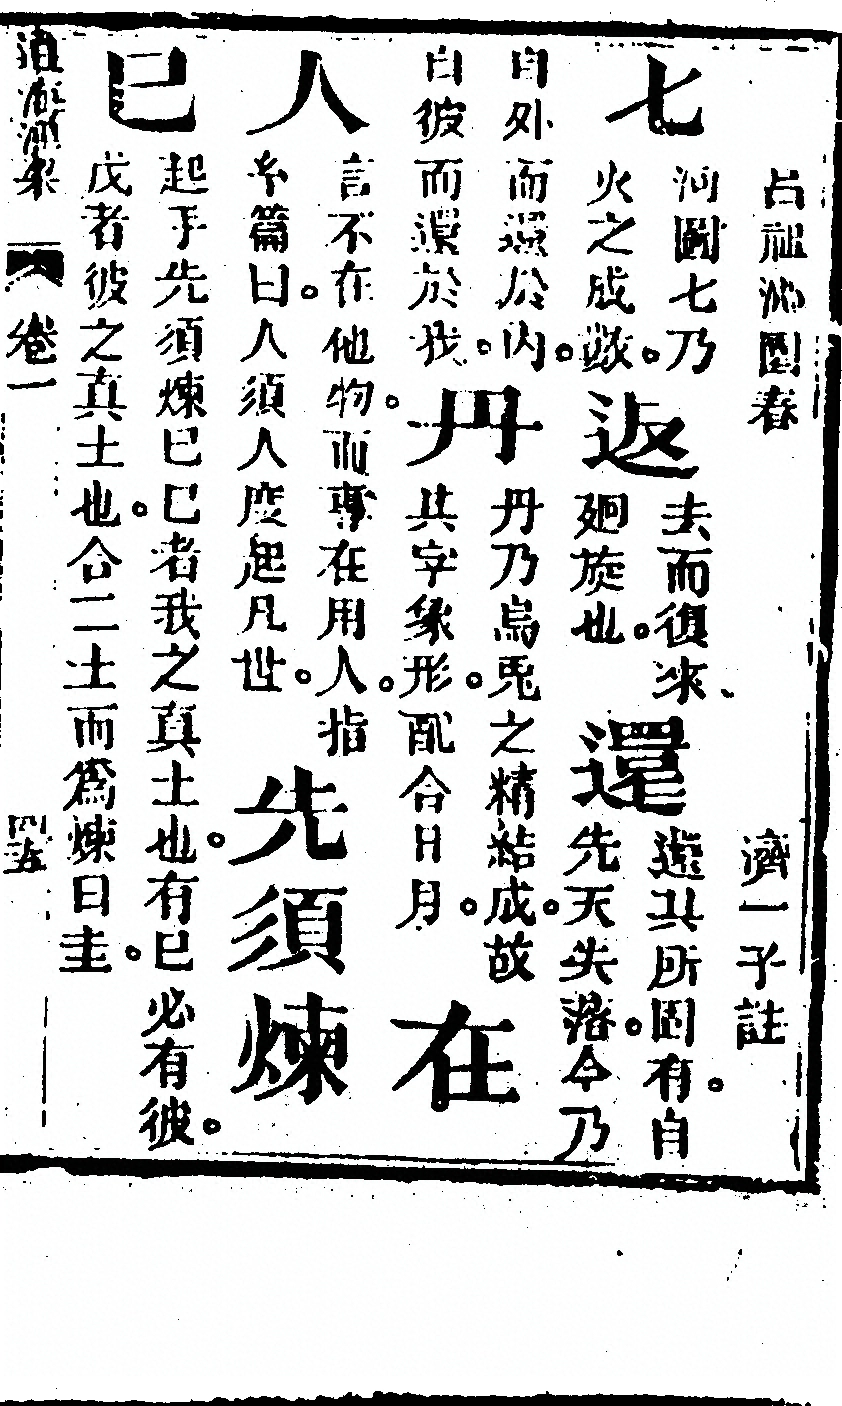 呂祖沁園春 濟一子註
七 河圖七乃火之成數。 返 去而復來、廻旋也。 還 還其所固有。自先天失落。今乃
自外而還於內。自彼而還於我。 丹 丹乃烏兎之精結成。故其字象形。配合日月。 在
人 言不在他物。而專在用人。指糸篇曰。人須人度超凡世。 先須煉
己 起手先須煉己己者我之真土也。有己必有彼。戊者彼之真土也。合二土而爲煉曰圭。
卷一 四五